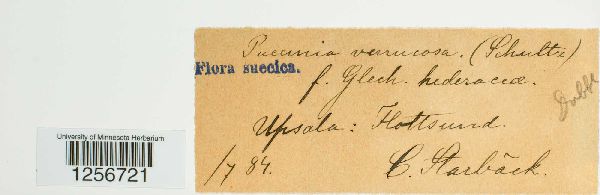 Puccinia verrucosa. (Schultz)
Flora suecica.
f. Glech. hederaceæ.
Dubbl
Upsala: Flottsund.
1/7 84. C. Starbäck.
University of Minnesota Herbarium
1256721